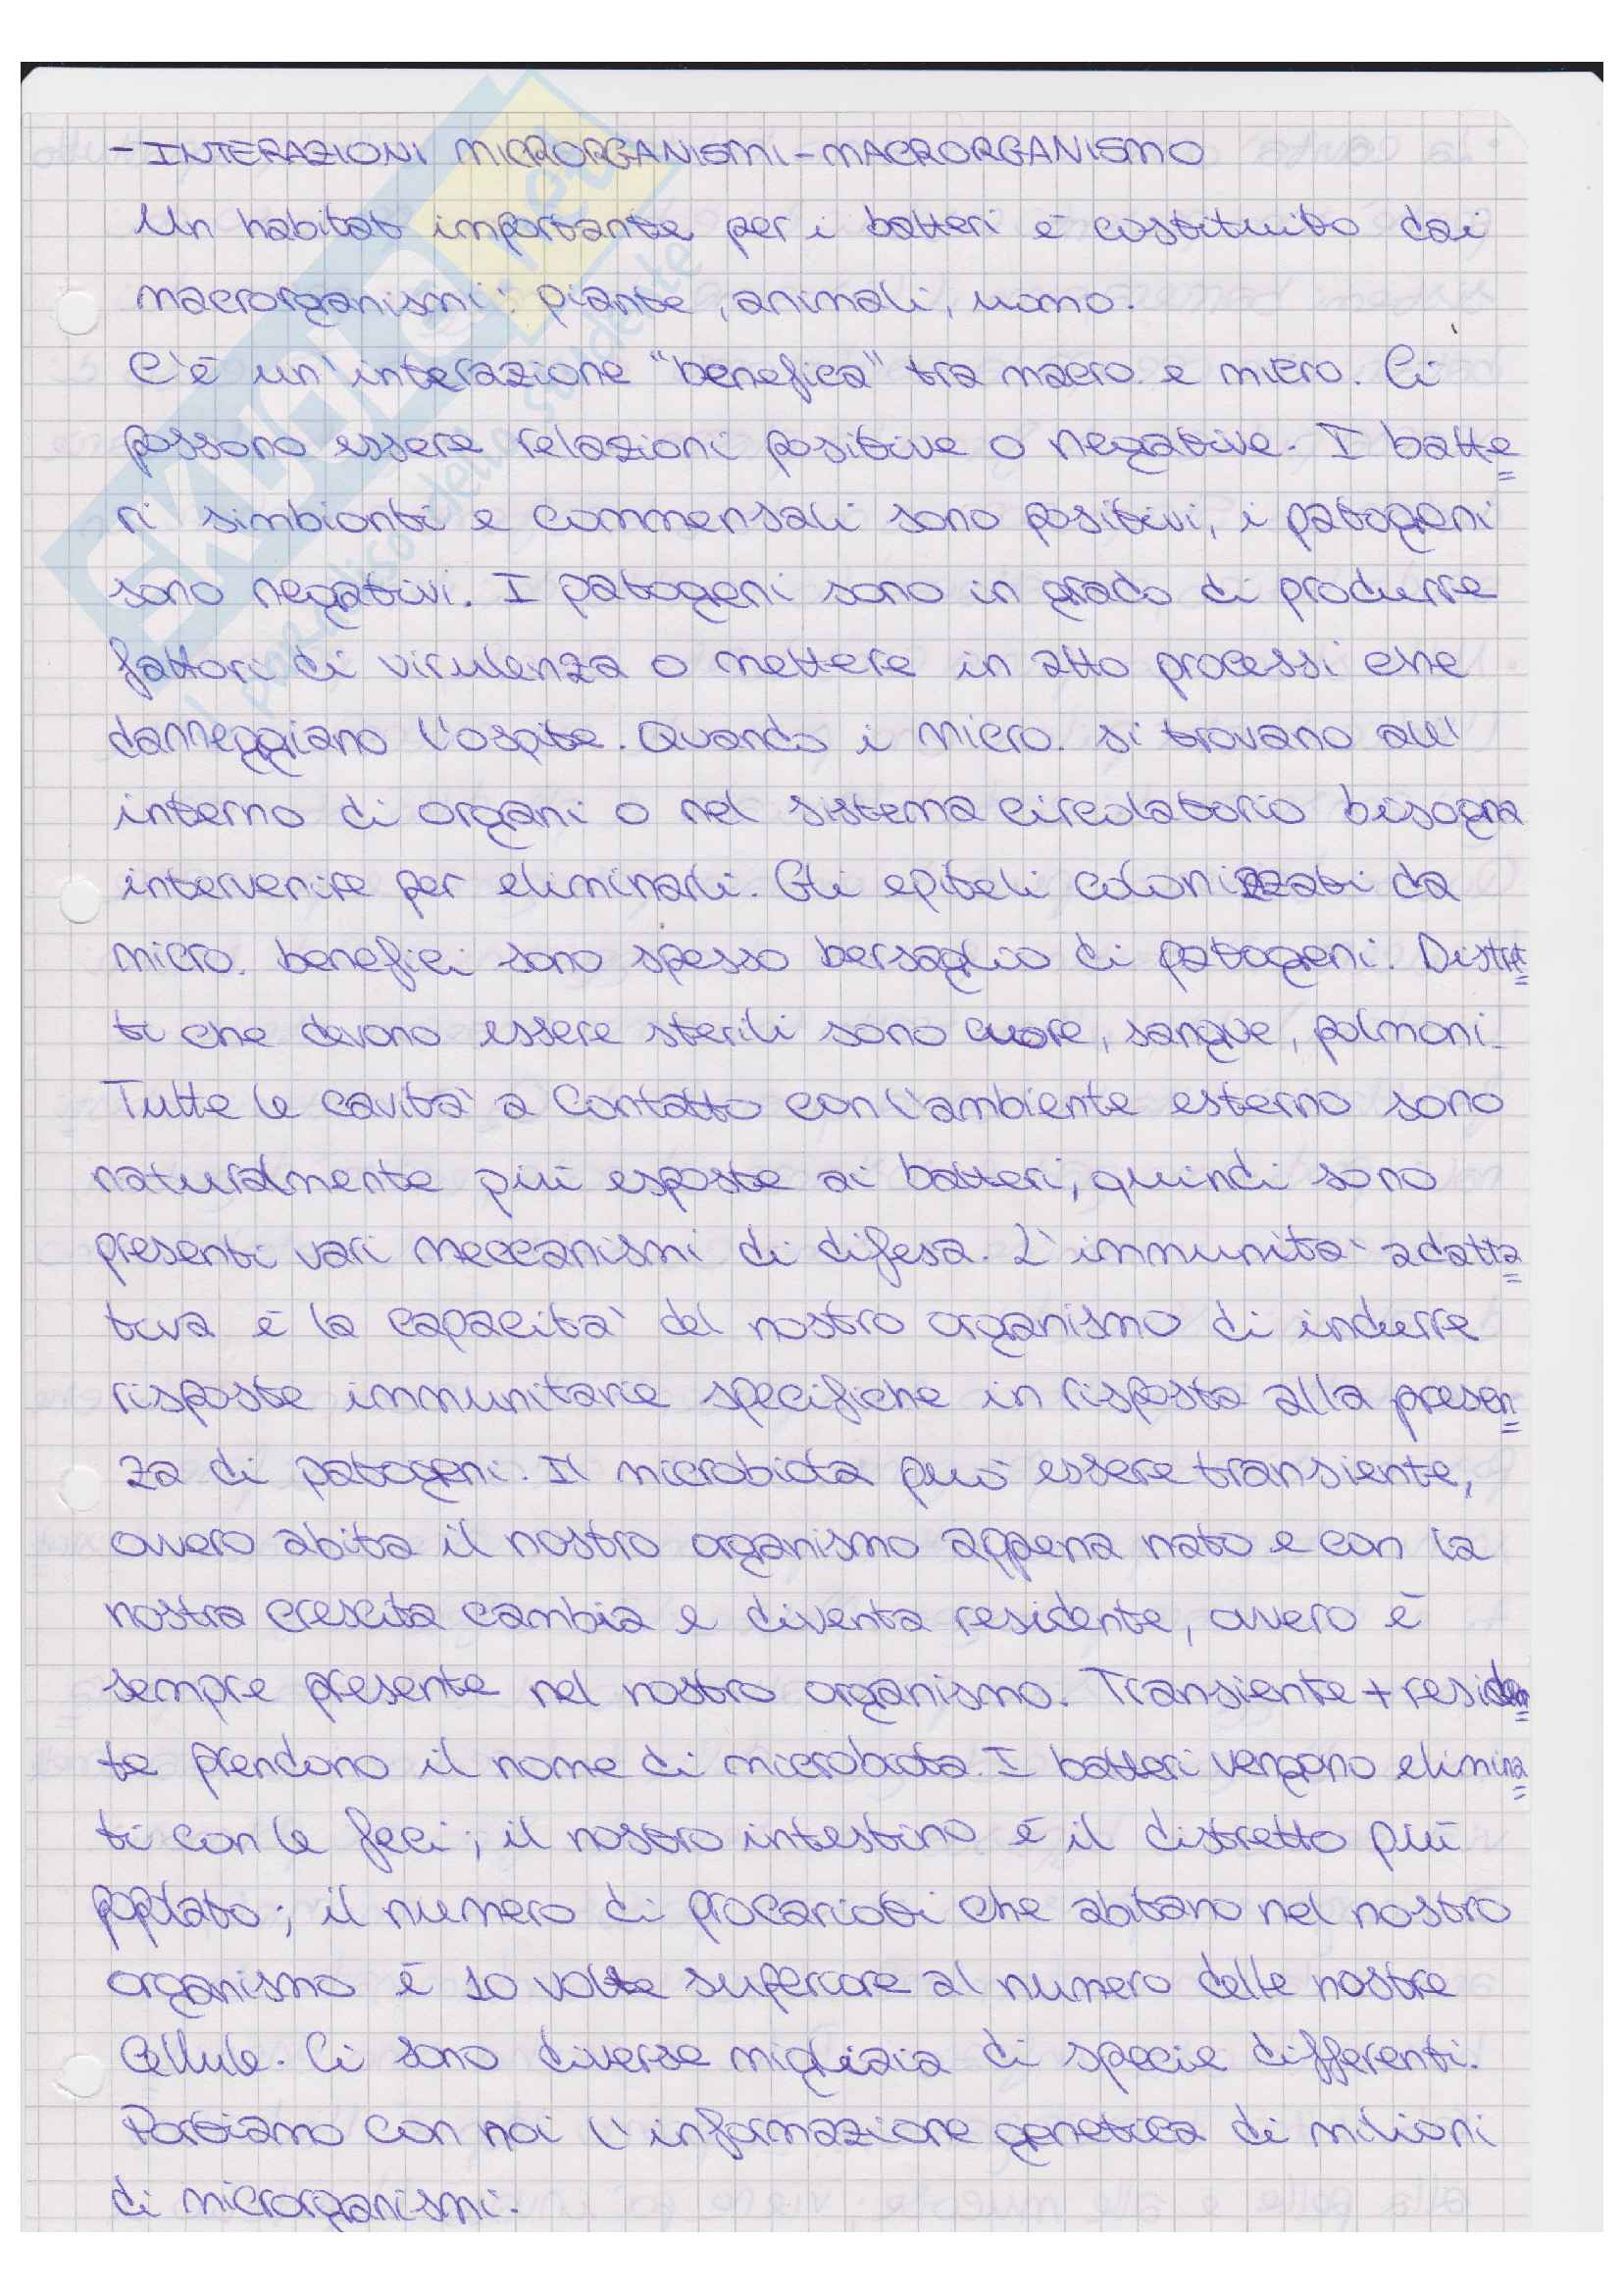 - INTERAZIONI MICRORGANISMI - MACRORGANISMO
Un habitat importante per i batteri è costituito dai
macrorganismi: piante, animali, uomo.
C'è un'interazione "benefica" tra macro e micro. Ci
possono essere relazioni positive o negative. I batte
ri simbionti e commensali sono positivi, i patogeni
sono negativi. I patogeni sono in grado di produrre
fattori di virulenza o mettere in atto processi che
danneggiano l'ospite. Quando i micro. si trovano all'
interno di organi o nel sistema circolatorio bisogna
intervenire per eliminarli. Gli epiteli colonizzati da
micro. benefici sono spesso bersaglio di patogeni. Distret
ti che devono essere sterili sono cuore, sangue, polmoni.
Tutte le cavità a contatto con l'ambiente esterno sono
naturalmente più esposte ai batteri, quindi sono
presenti vari meccanismi di difesa. L'immunità adatta
tiva è la capacità del nostro organismo di indurre
risposte immunitarie specifiche in risposta alla presen
za di patogeni. Il microbiota può essere transiente,
ovvero abita il nostro organismo appena nato e con la
nostra crescita cambia e diventa residente, ovvero è
sempre presente nel nostro organismo. Transiente + residen
te prendono il nome di microbiota. I batteri vengono elimina
ti con le feci; il nostro intestino è il distretto più
popolato; il numero di procarioti che abitano nel nostro
organismo è 10 volte superiore al numero delle nostre
cellule. Ci sono diverse migliaia di specie differenti.
Portiamo con noi l'informazione genetica di milioni
di microrganismi.